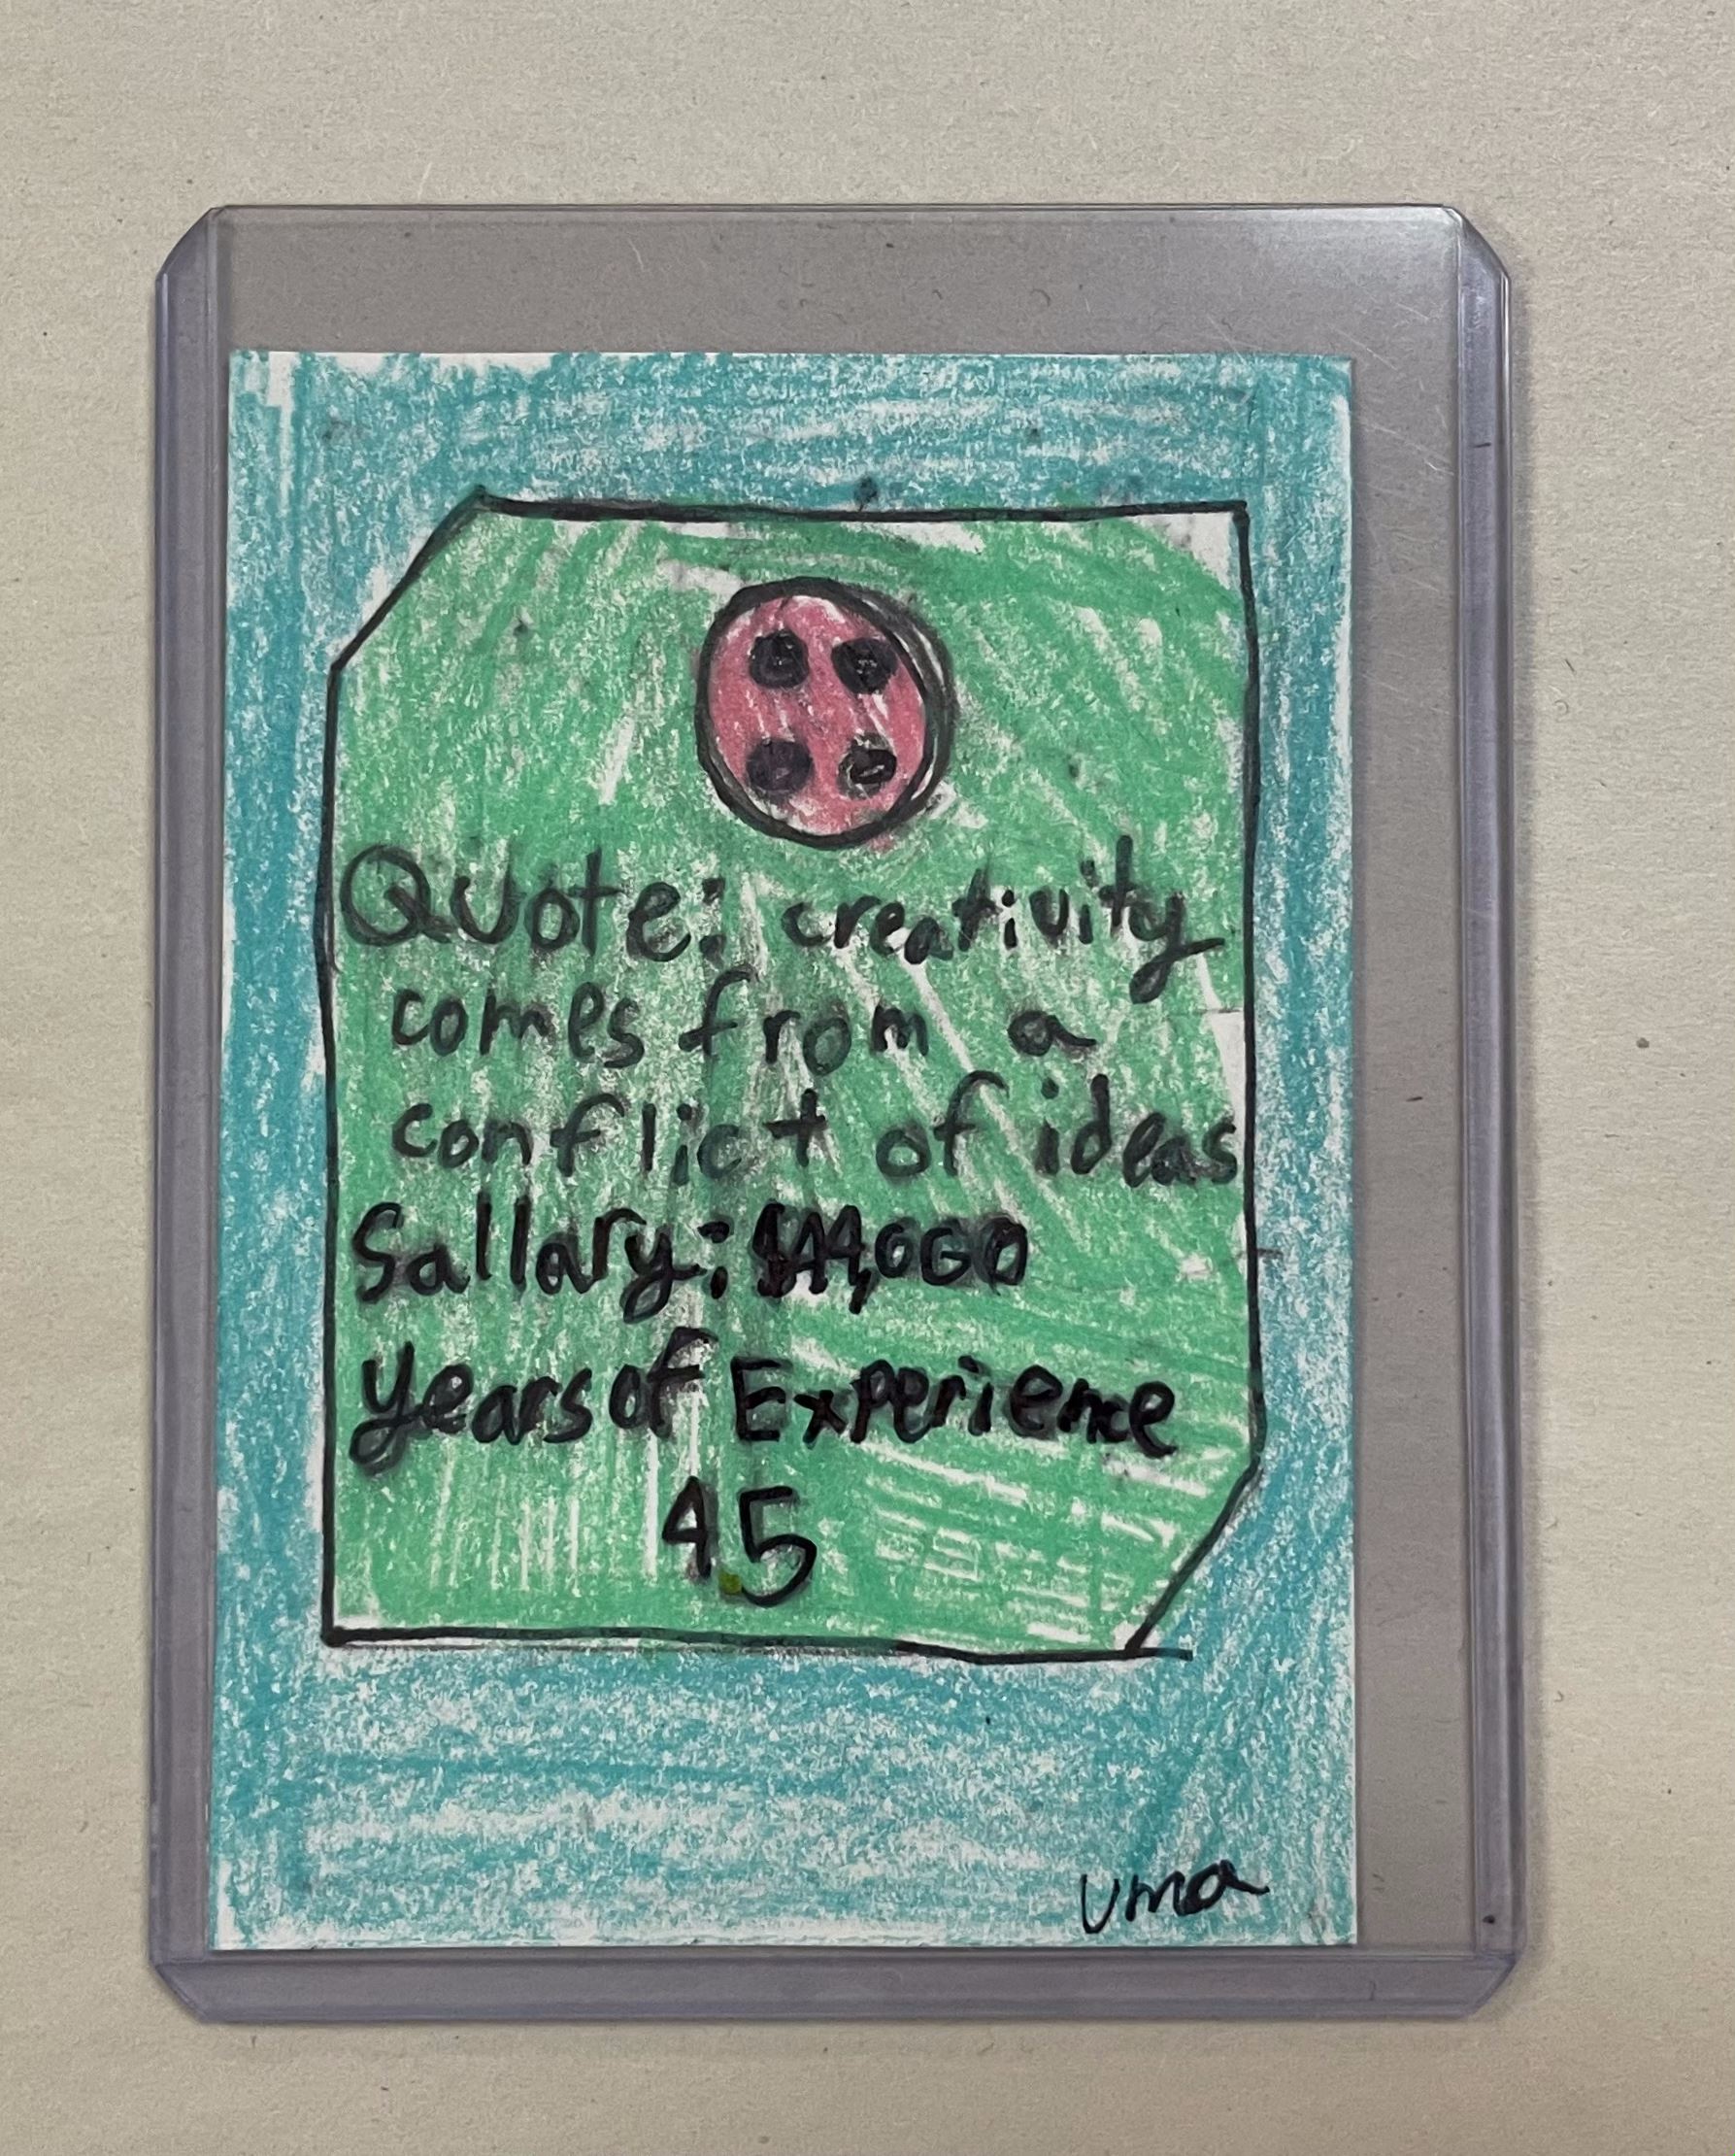 Quote: creativity
comes from a
conflict of ideas
Sallary:
years of Experience
4.5
uma